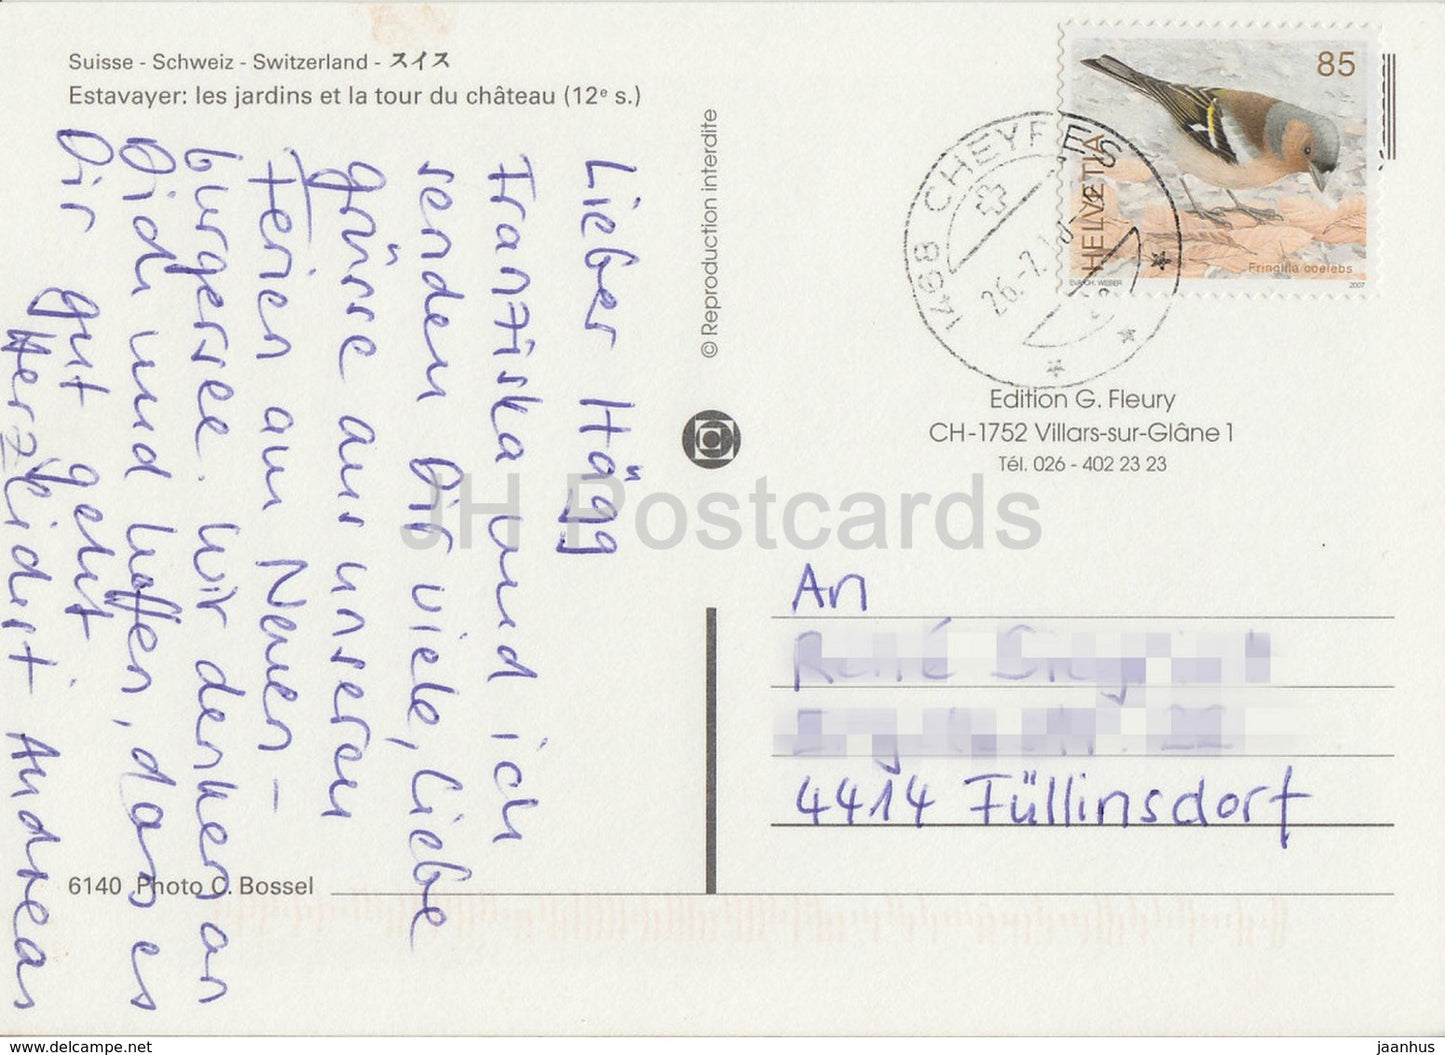 Suisse - Schweiz - Switzerland - スイス
Estavayer: les jardins et la tour du château (12e s.)
Lieber Hägg
Franziska und ich
senden Dir viele, liebe
grüsse aus unseren
Ferien am Neuen-
burgersee. Wir denken an
Dich und hoffen, dass es
Dir gut geht.
Herzlichst Andreas
6140 Photo C. Bossel
© Reproduction interdite
85
HELVETIA
Fringilla coelebs
EVA CH. WEBER
2007
1468 CHEYRES
26.-7.1
Edition G. Fleury
CH-1752 Villars-sur-Glâne 1
Tél. 026 - 402 23 23
JH Postcards
An
René
4414 Füllinsdorf
www.delcampe.net
jaanhus